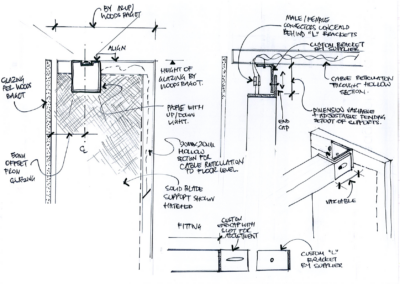 BY ARUP/
WOODS BAGOT
ALIGN
GLAZING
PER WOODS
BAGOT
HEIGHT OF
GLAZING BY
WOODS BAGOT.
PROFILE WITH
UP/DOWN
LIGHT.
OFFSET
FROM
GLAZING
HOLLOW
SECTION FOR
CABLE RETICULATION
TO FLOOR LEVEL.
SOLID BLADE
SUPPORT SHOWN
HATCHED
MALE/FEMALE
CONNECTORS CONCEALED
BEHIND "L" BRACKETS
CUSTOM BRACKET
BY SUPPLIER
CABLE RETICULATION
THROUGH HOLLOW
SECTION.
DIMENSION VARIABLE
SETOUT OF SUPPORTS.
END
CAP
VARIABLE
FITTING
CUSTOM
ENDCAP WITH
SLOT FOR
ADJUSTMENT
CUSTOM "L"
BRACKET
BY SUPPLIER